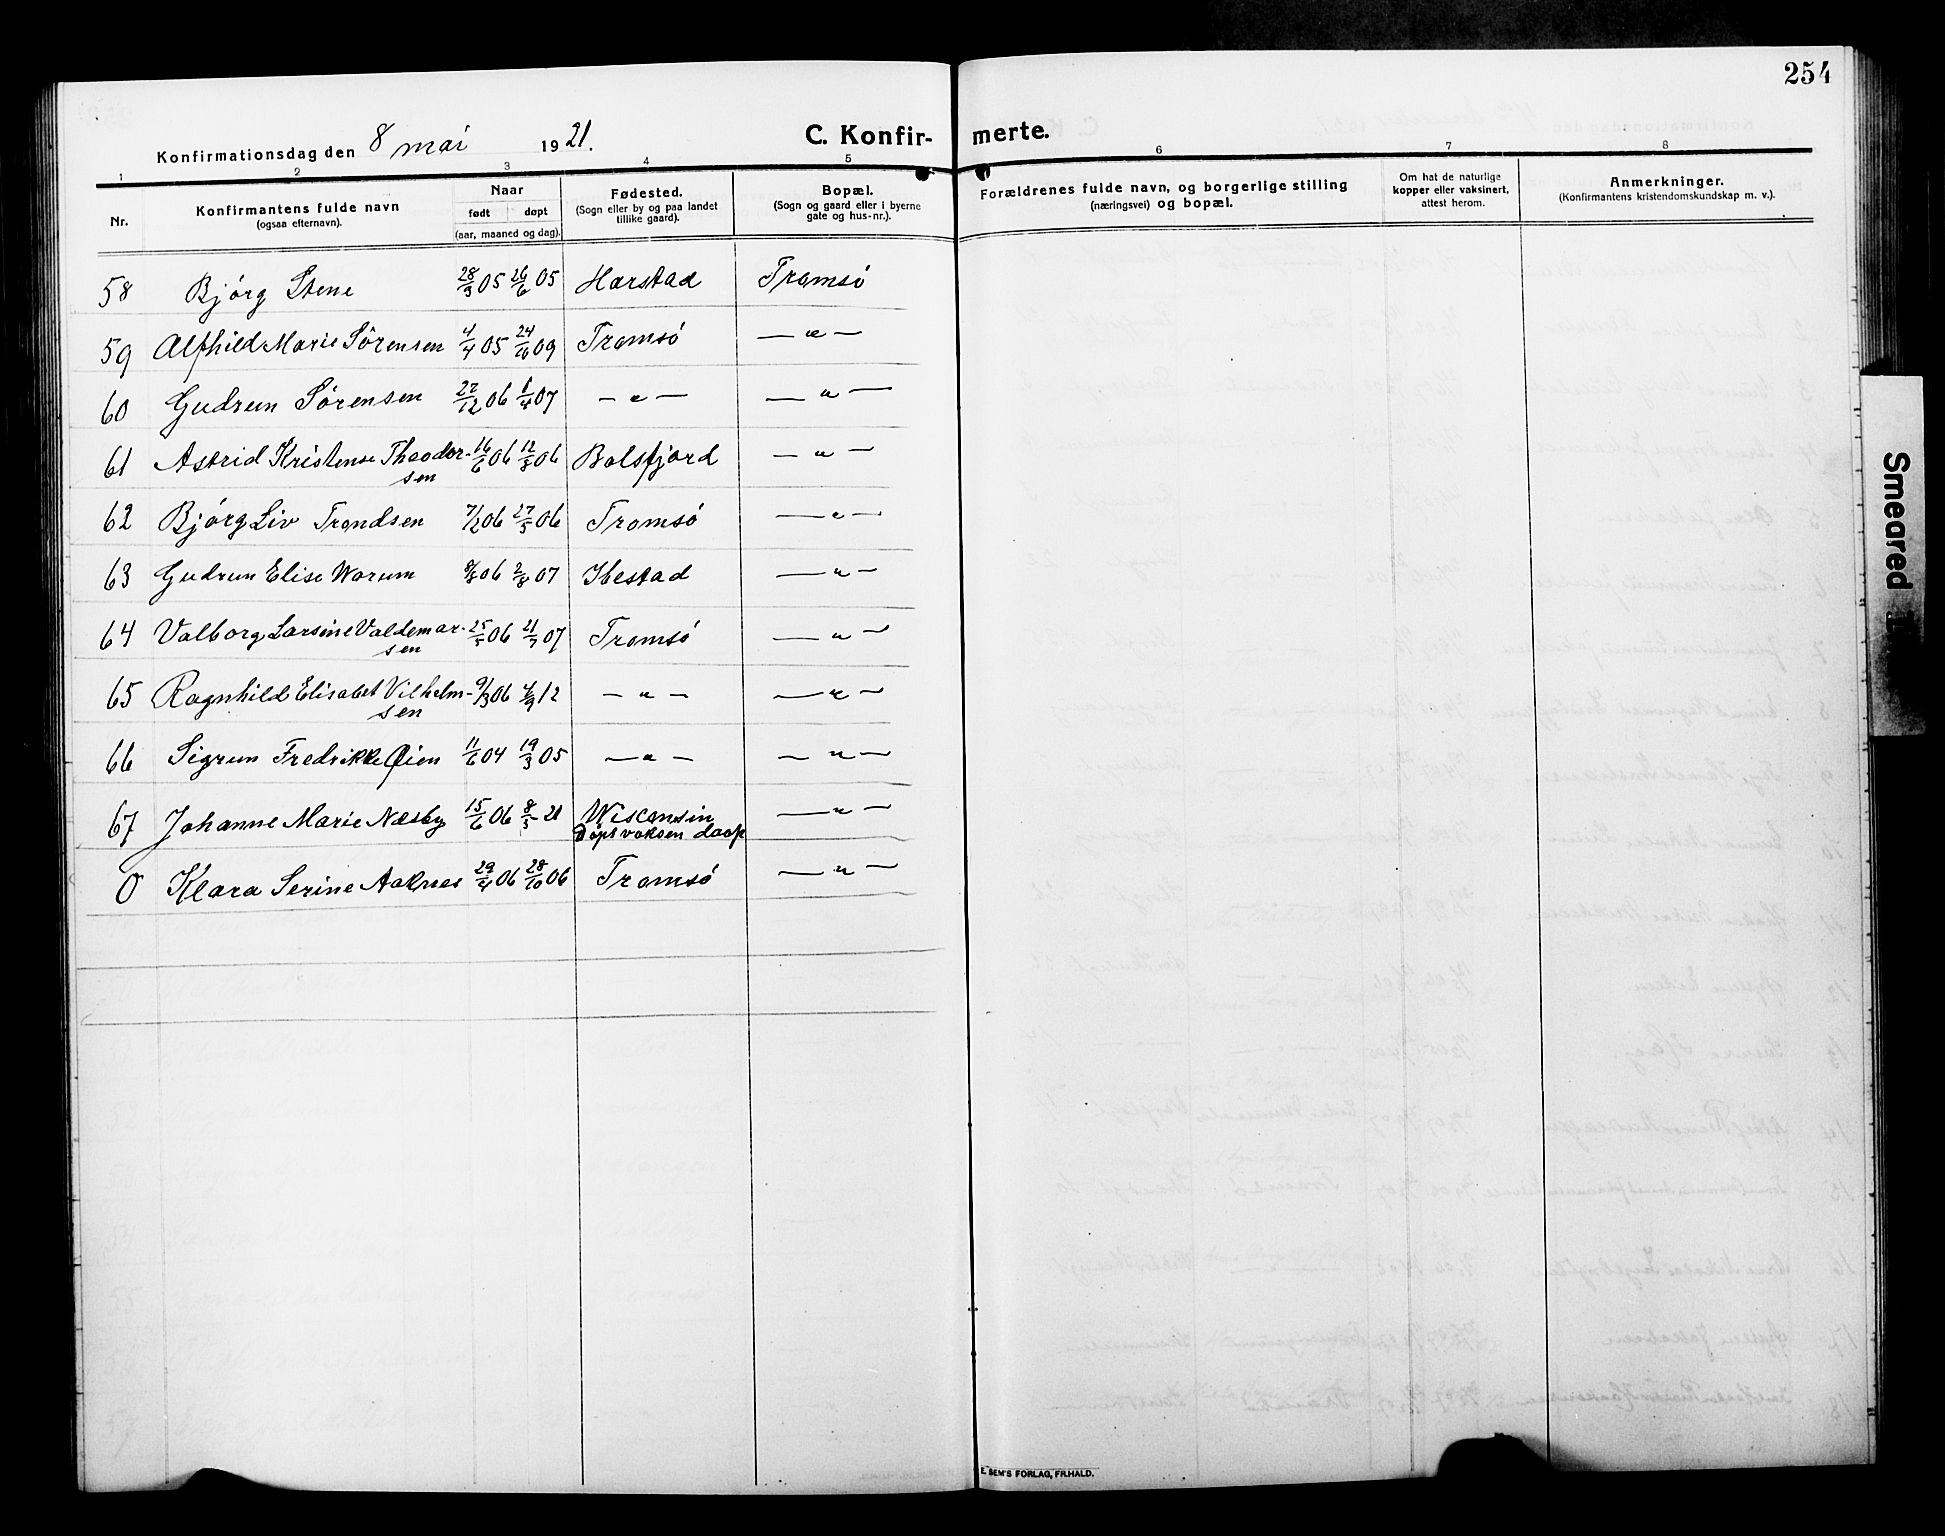 254
Konfirmationsdag den 8 mai 1921.
C. Konfir- merte.
1 2 3 4 5 6 7 8
Nr.
Konfirmantens fulde navn
(ogsaa efternavn).
Naar
født døpt
(aar, maaned og dag).
Fødested.
(Sogn eller by og paa landet
tillike gaard).
Bopæl.
(Sogn og gaard eller i byerne
gate og hus-nr.).
Forældrenes fulde navn, og borgerlige stilling
(næringsvei) og bopæl.
Om hat de naturlige
kopper eller vaksinert,
attest herom.
Anmerkninger.
(Konfirmantens kristendomskundskap m. v.).
58 Bjórg Stene 28/3 05 26/6 05 Harstad Tromsó
59 Alfhild Marie Sörensen 4/4 05 24/10 09 Tromsó — " —
60 Gudrun Sörensen 27/12 06 1/4 07 — " — — " —
61 Astrid Kristense Theodor-
sen 16/6 06 12/8 06 Balsfjord — " —
62 Bjórg Liv Trondsen 7/2 06 27/5 06 Tromsó — " —
63 Gudrun Elise Worum 8/8 06 2/8 07 Ibestad — " —
64 Valborg Larsine Valdemar-
sen 25/5 06 21/7 07 Tromsó — " —
65 Ragnhild Elisabet Vilhelm-
sen 9/3 06 4/9 12 — " — — " —
66 Sigrun Fredrikke Øien 11/6 04 19/3 05 — " — — " —
67 Johanne Marie Næsby 15/6 06 8/5 21 Wisconsin — " —
Döpt voksen daap
0 Klara Serine Aaknes 29/4 06 28/10 06 Tromsó — " —
E. SEM'S FORLAG, FR.HALD.
Smeared